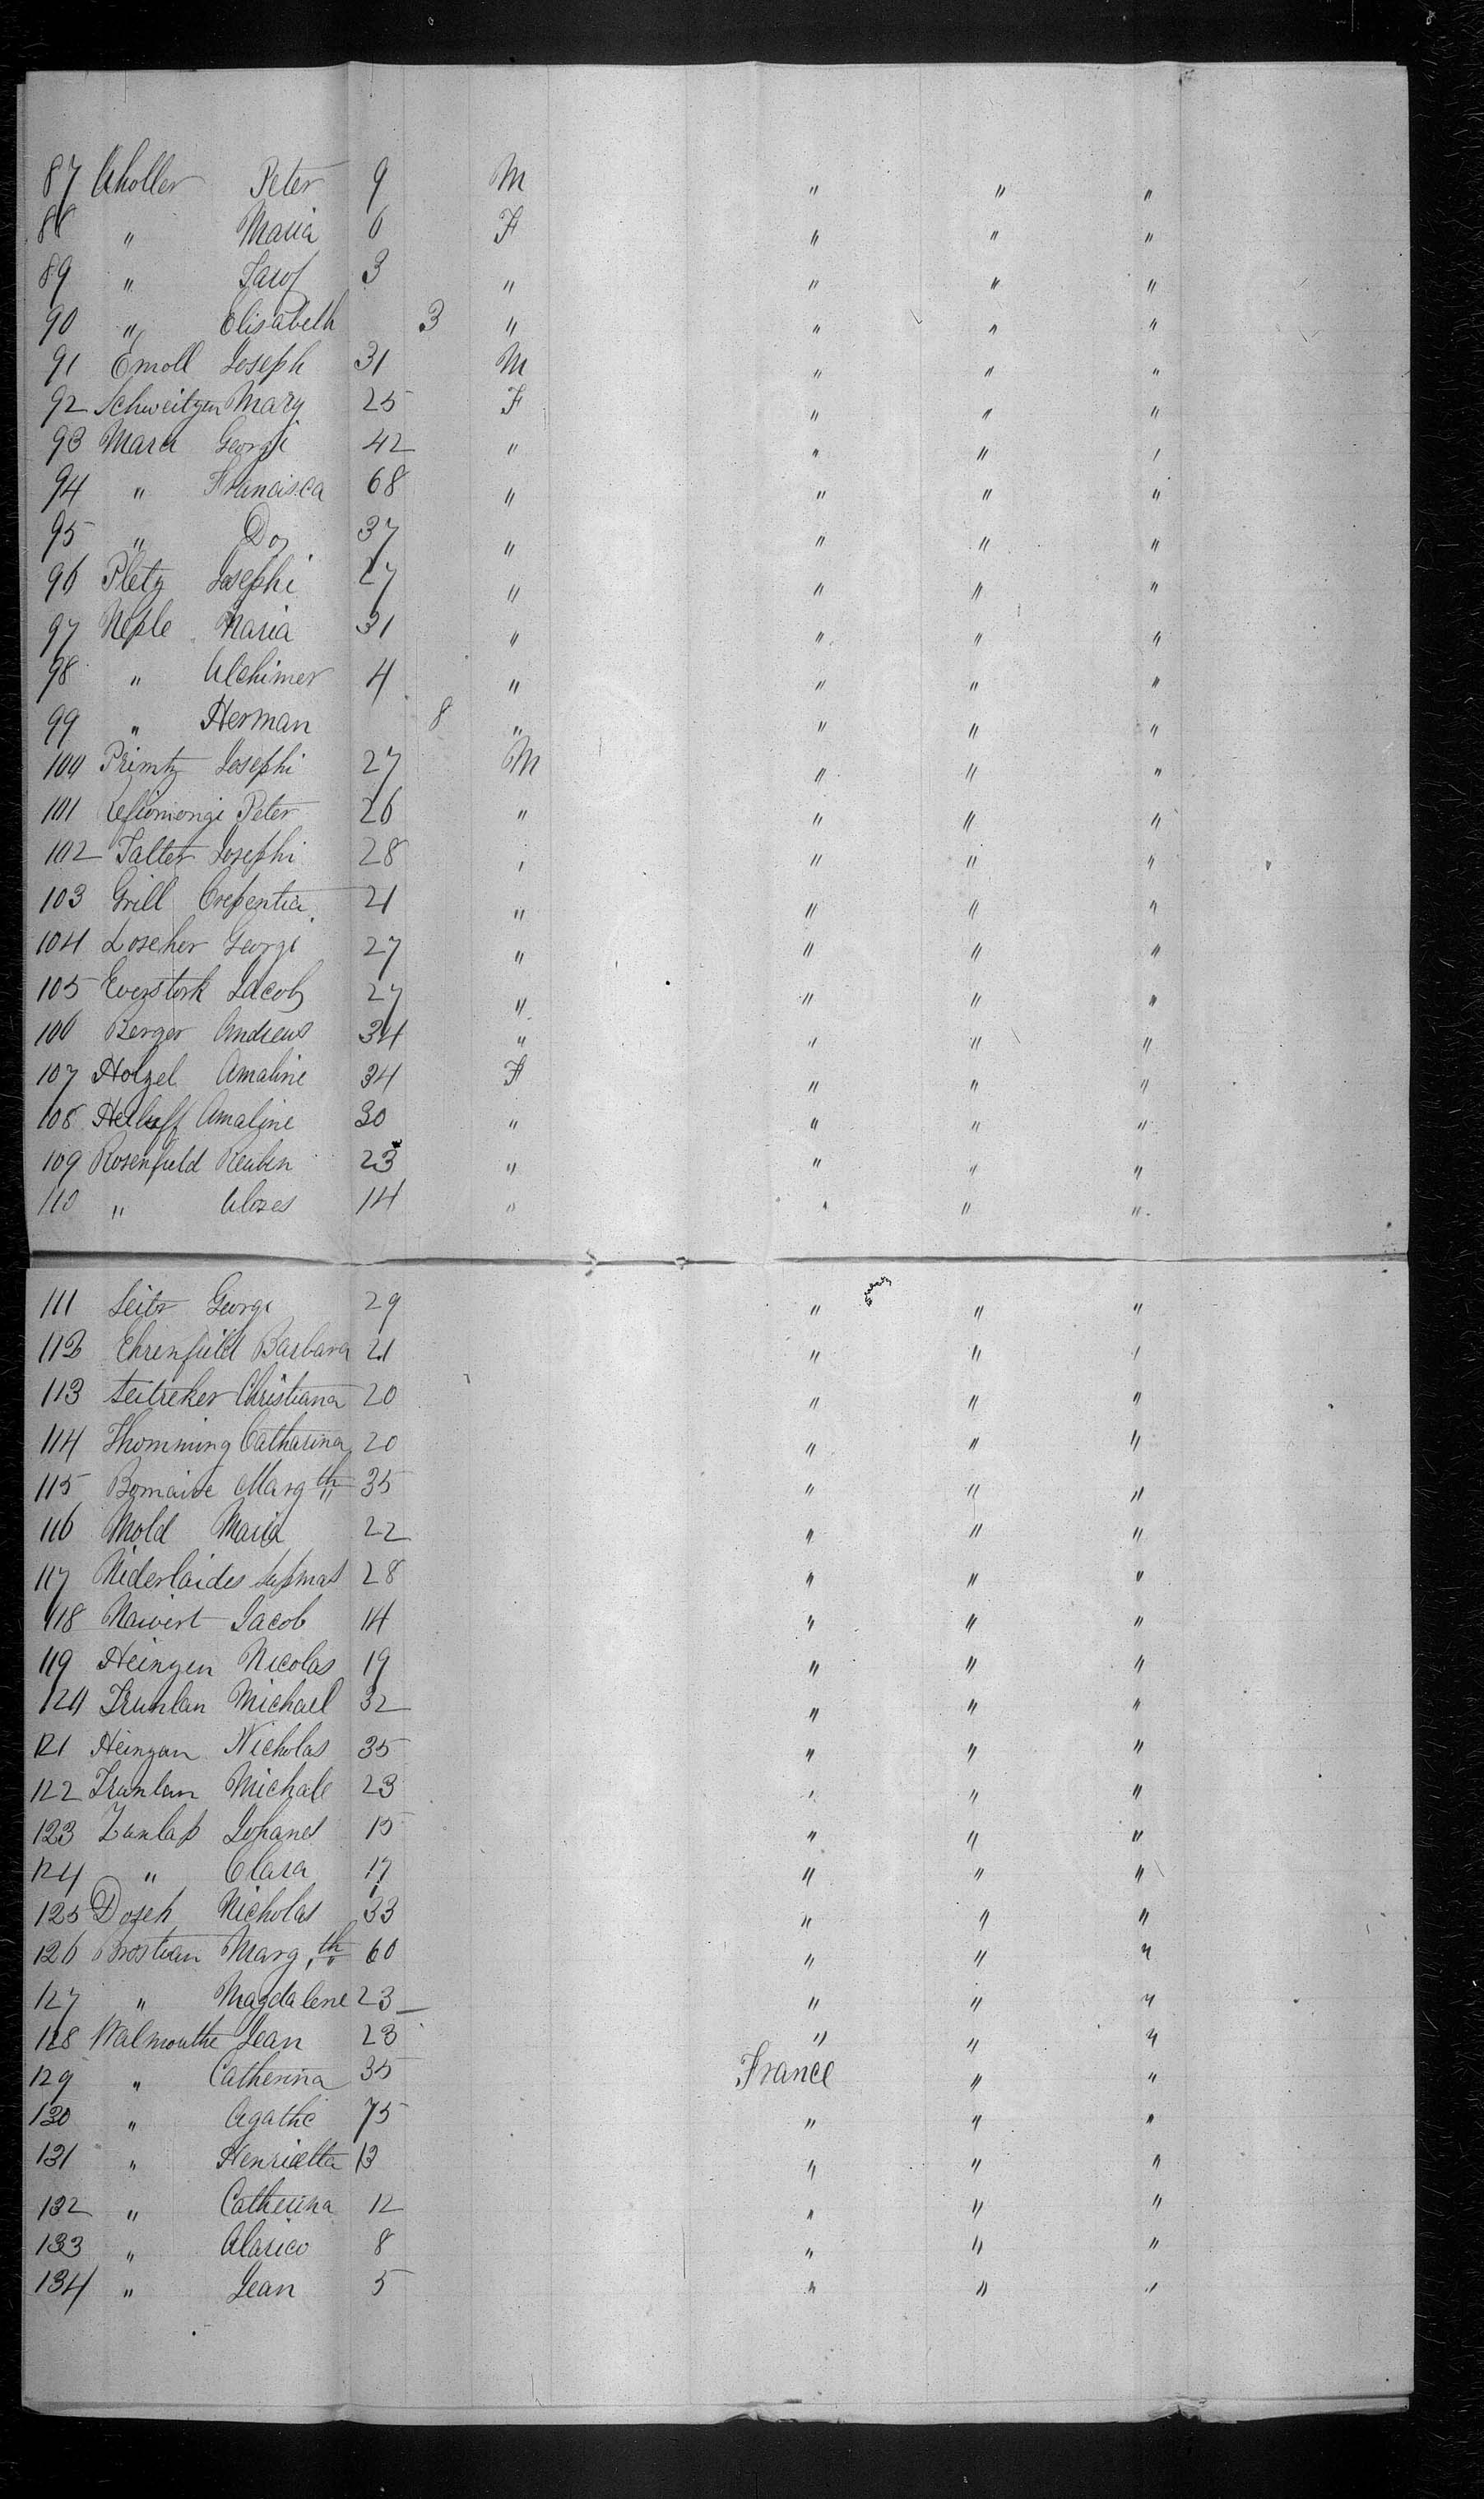 87 Aholler Peter 9 M " " "
88 " Maria 6 F " " "
89 " Jacof 3 " " " "
90 " Elisabeth 3 " " " "
91 Emoll Joseph 31 M " " "
92 Schweitzer Mary 25 F " " "
93 Mara Georgi 42 " " " "
94 " Francisca 68 " " " "
95 " Do, 37 " " " "
96 Pletz Josephi 27 " " " "
97 Neple Maria 31 " " " "
98 " Alchimer 4 " " " "
99 " Herman 8 " " " "
100 Primtz Josephi 27 M " " "
101 Peter 26 " " " "
102 Talter Josephi 28 " " " "
103 Grill Crepentia 21 " " " "
104 Loseher Georgi 27 " " " "
105 Everstork Jacob 27 " " " "
106 Berger Andreus 34 " " " "
107 Holzel Amaline 34 F " " "
108 Amaline 30 " " " "
109 Rosenfield Reuben 23 " " " "
110 " Alozes 14 " " " "
111 Seitz Georgi 29 " " "
112 Ehrenfield Barbara 21 " " "
113 Seitreker Christiana 20 " " "
114 Thomming Catharina 20 " " "
115 Bomaire Margth 35 " " "
116 Mold Maria 22 " " "
117 Niderlaides 28 " " "
118 Nawert Jacob 14 " " "
119 Heingen Nicolas 19 " " "
120 Trunlan Michael 32 " " "
121 Heingan Nicholas 35 " " "
122 Trunlan Michale 23 " " "
123 Zunlap Johanes 15 " " "
124 " Clara 17 " " "
125 Doseh Nicholas 33 " " "
126 Brostian Margth 60 " " "
127 " Magdalene 23 " " "
128 Walmouthe Jean 23 " " "
129 " Catherina 35 France " "
130 " Agathe 75 " " "
131 " Henrietta 13 " " "
132 " Catherina 12 " " "
133 " Alarico 8 " " "
134 " Jean 5 " " "